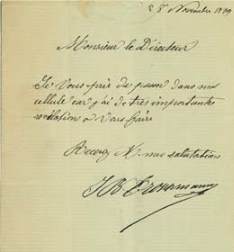 25 Novembre 1869
Monsieur le Directeur
Je vous prie de passer dans ma
cellule car j'ai de très importante
révélation a vous faire
Recevez M mes salutations